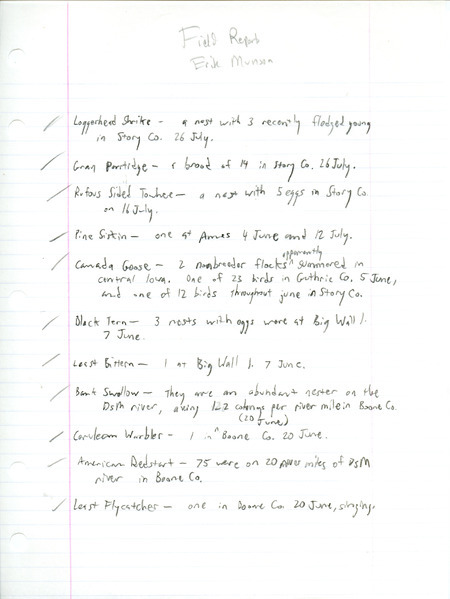 Field Report
Erik Munson
Loggerhead Shrike - a nest with 3 recently fledged young
in Story Co. 26 July.
Gray Partridge - a brood of 14 in Story Co. 26 July.
Rufous Sided Towhee - a nest with 5 eggs in Story Co.
on 16 July.
Pine Siskin - one at Ames 4 June and 12 July.
apparently
Canada Goose - 2 nonbreeder flocks ^ summered in
central Iowa. One of 23 birds in Guthrie Co. 5 June,
and one of 12 birds throughout june in Story Co.
Black Tern - 3 nests with eggs were at Big Wall l.
7 June.
Least Bittern - 1 at Big Wall l. 7 June.
Bank Swallow - they are an abundant nester on the
DsM river, 1.2 colonys per river mile in Boone Co.
(20 June)
Cerulean Warbler - 1 in Boone Co. 20 June.
American Redstart - 75 were on 20 river miles of DsM
river in Boone Co.
Least Flycatcher - one in Boone Co. 20 June, singing.